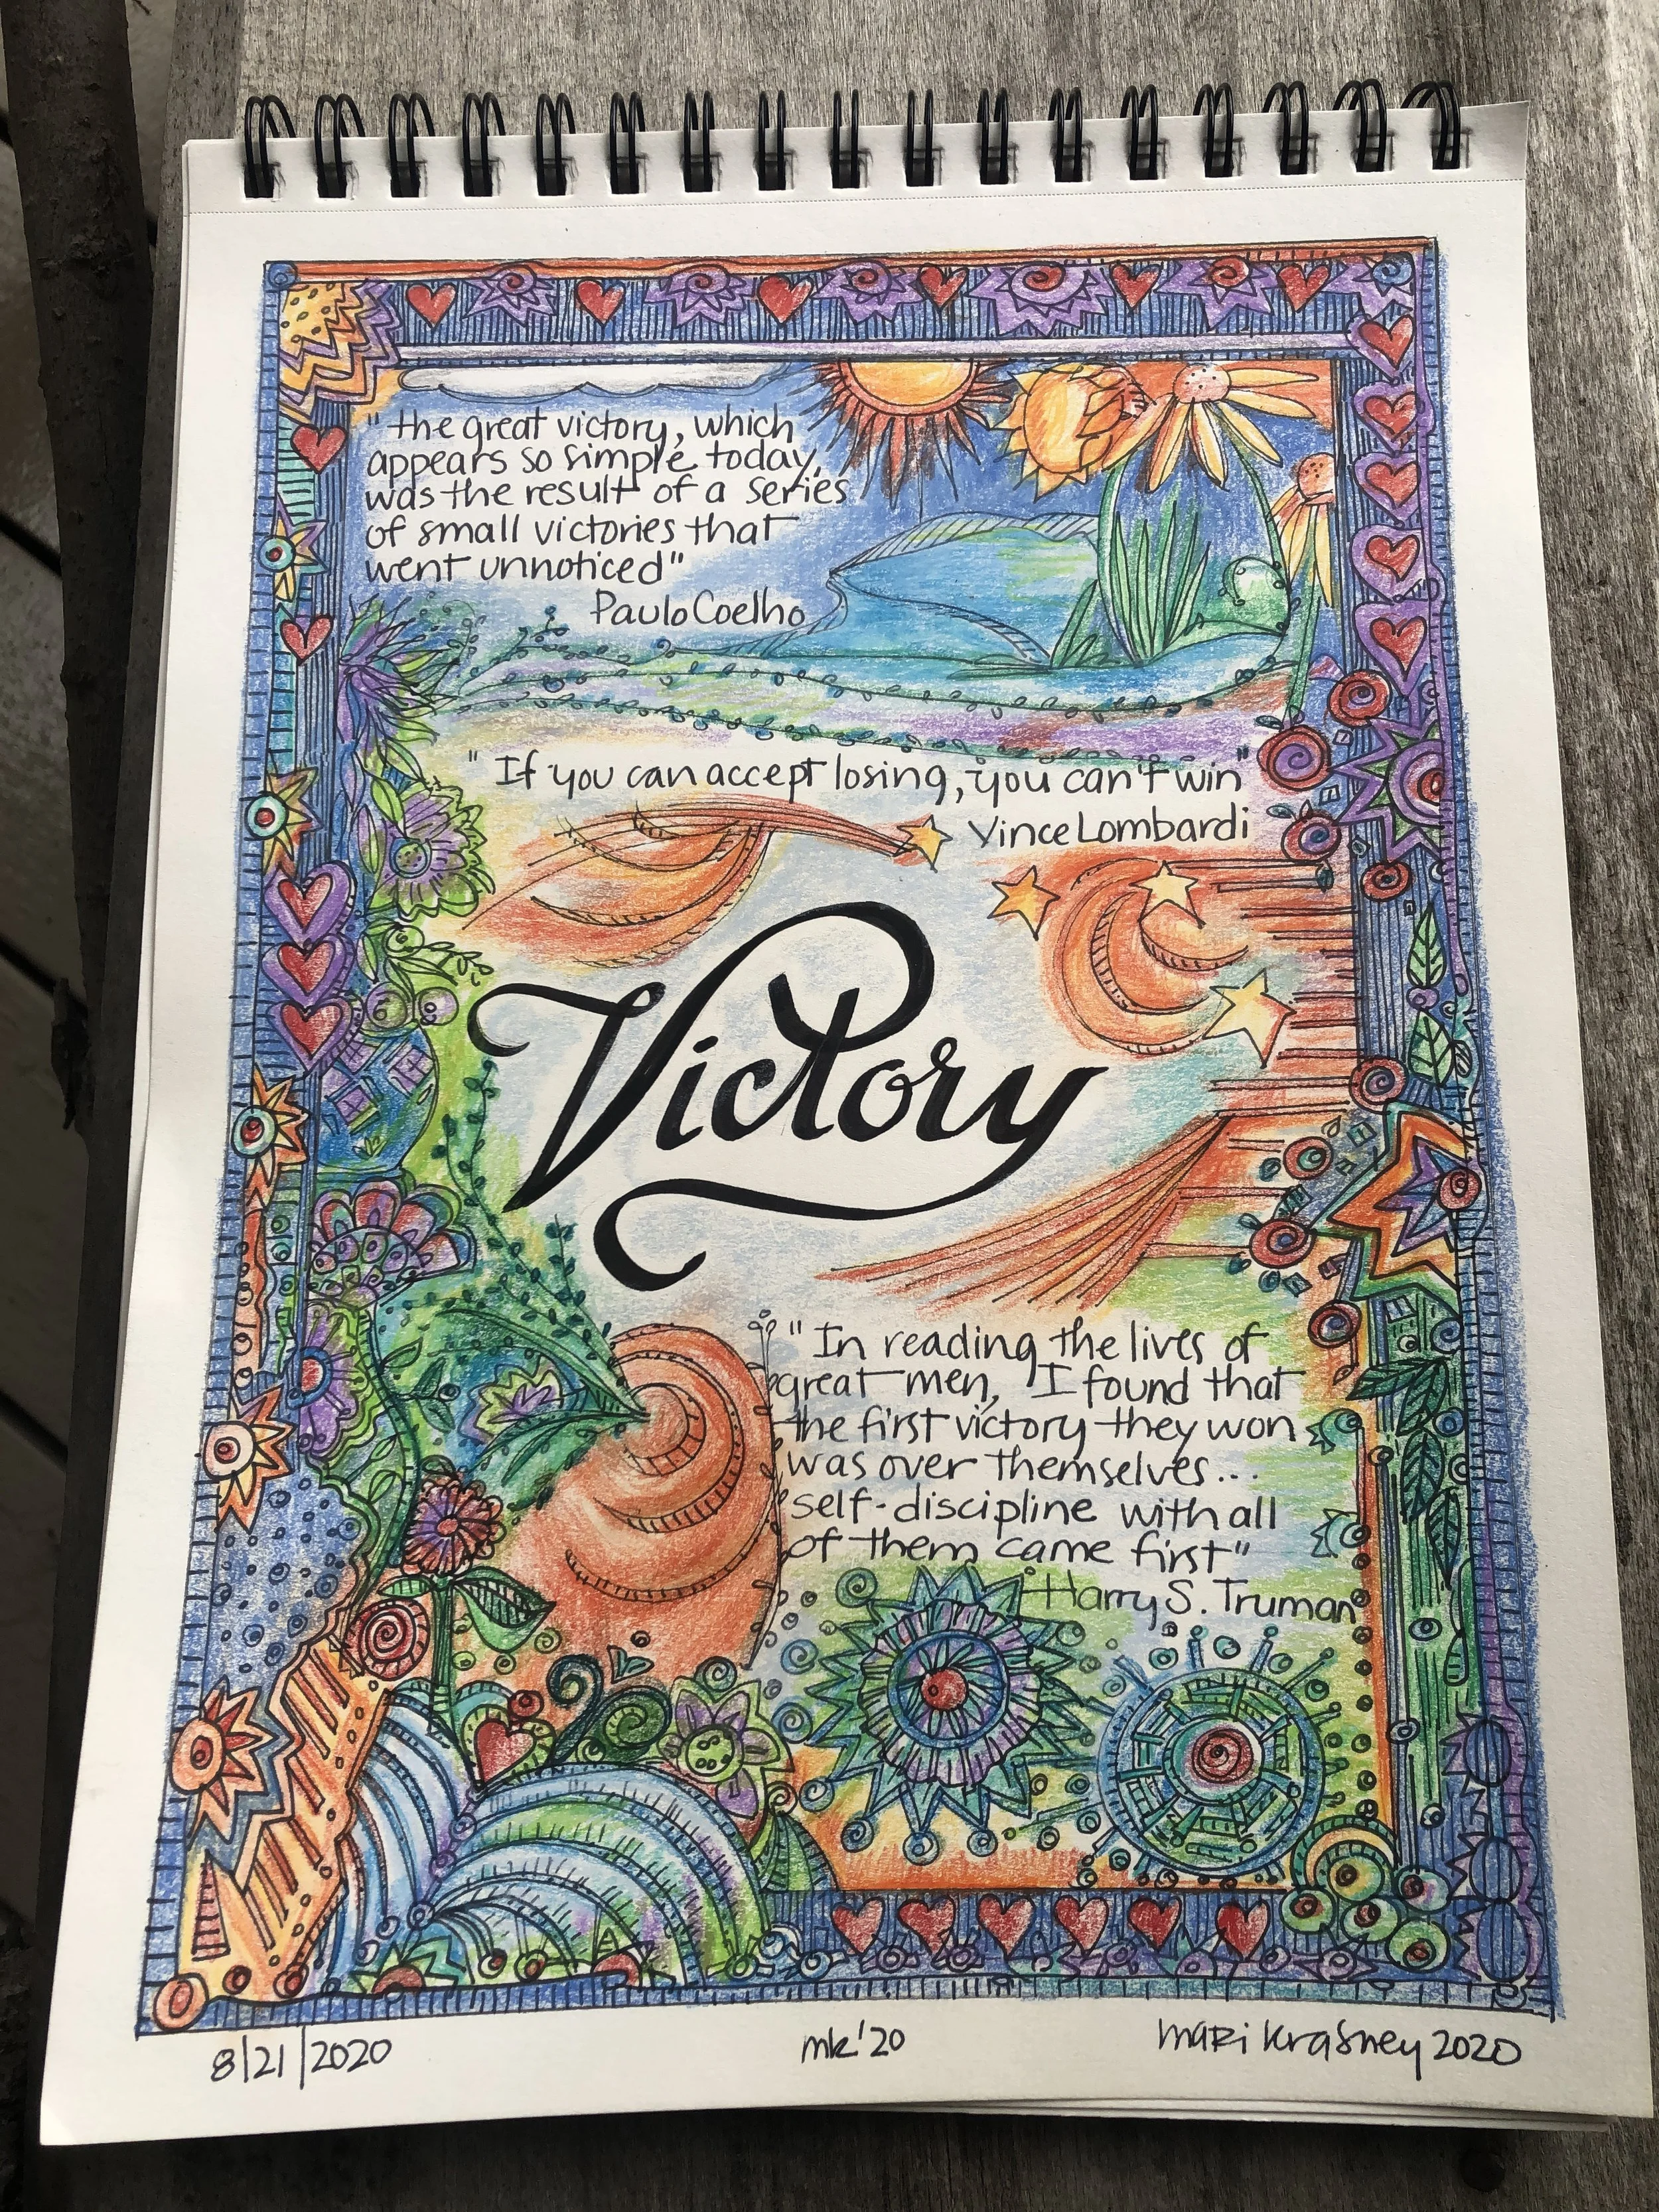 "the great victory, which
appears so simple today,
was the result of a series
of small victories that
went unnoticed"
Paulo Coelho
"If you can accept losing, you can't win"
Vince Lombardi
Victory
"In reading the lives of
great men, I found that
the first victory they won
was over themselves...
self-discipline with all
of them came first"
Harry S. Truman
8/21/2020
mk'20
mari krasney 2020